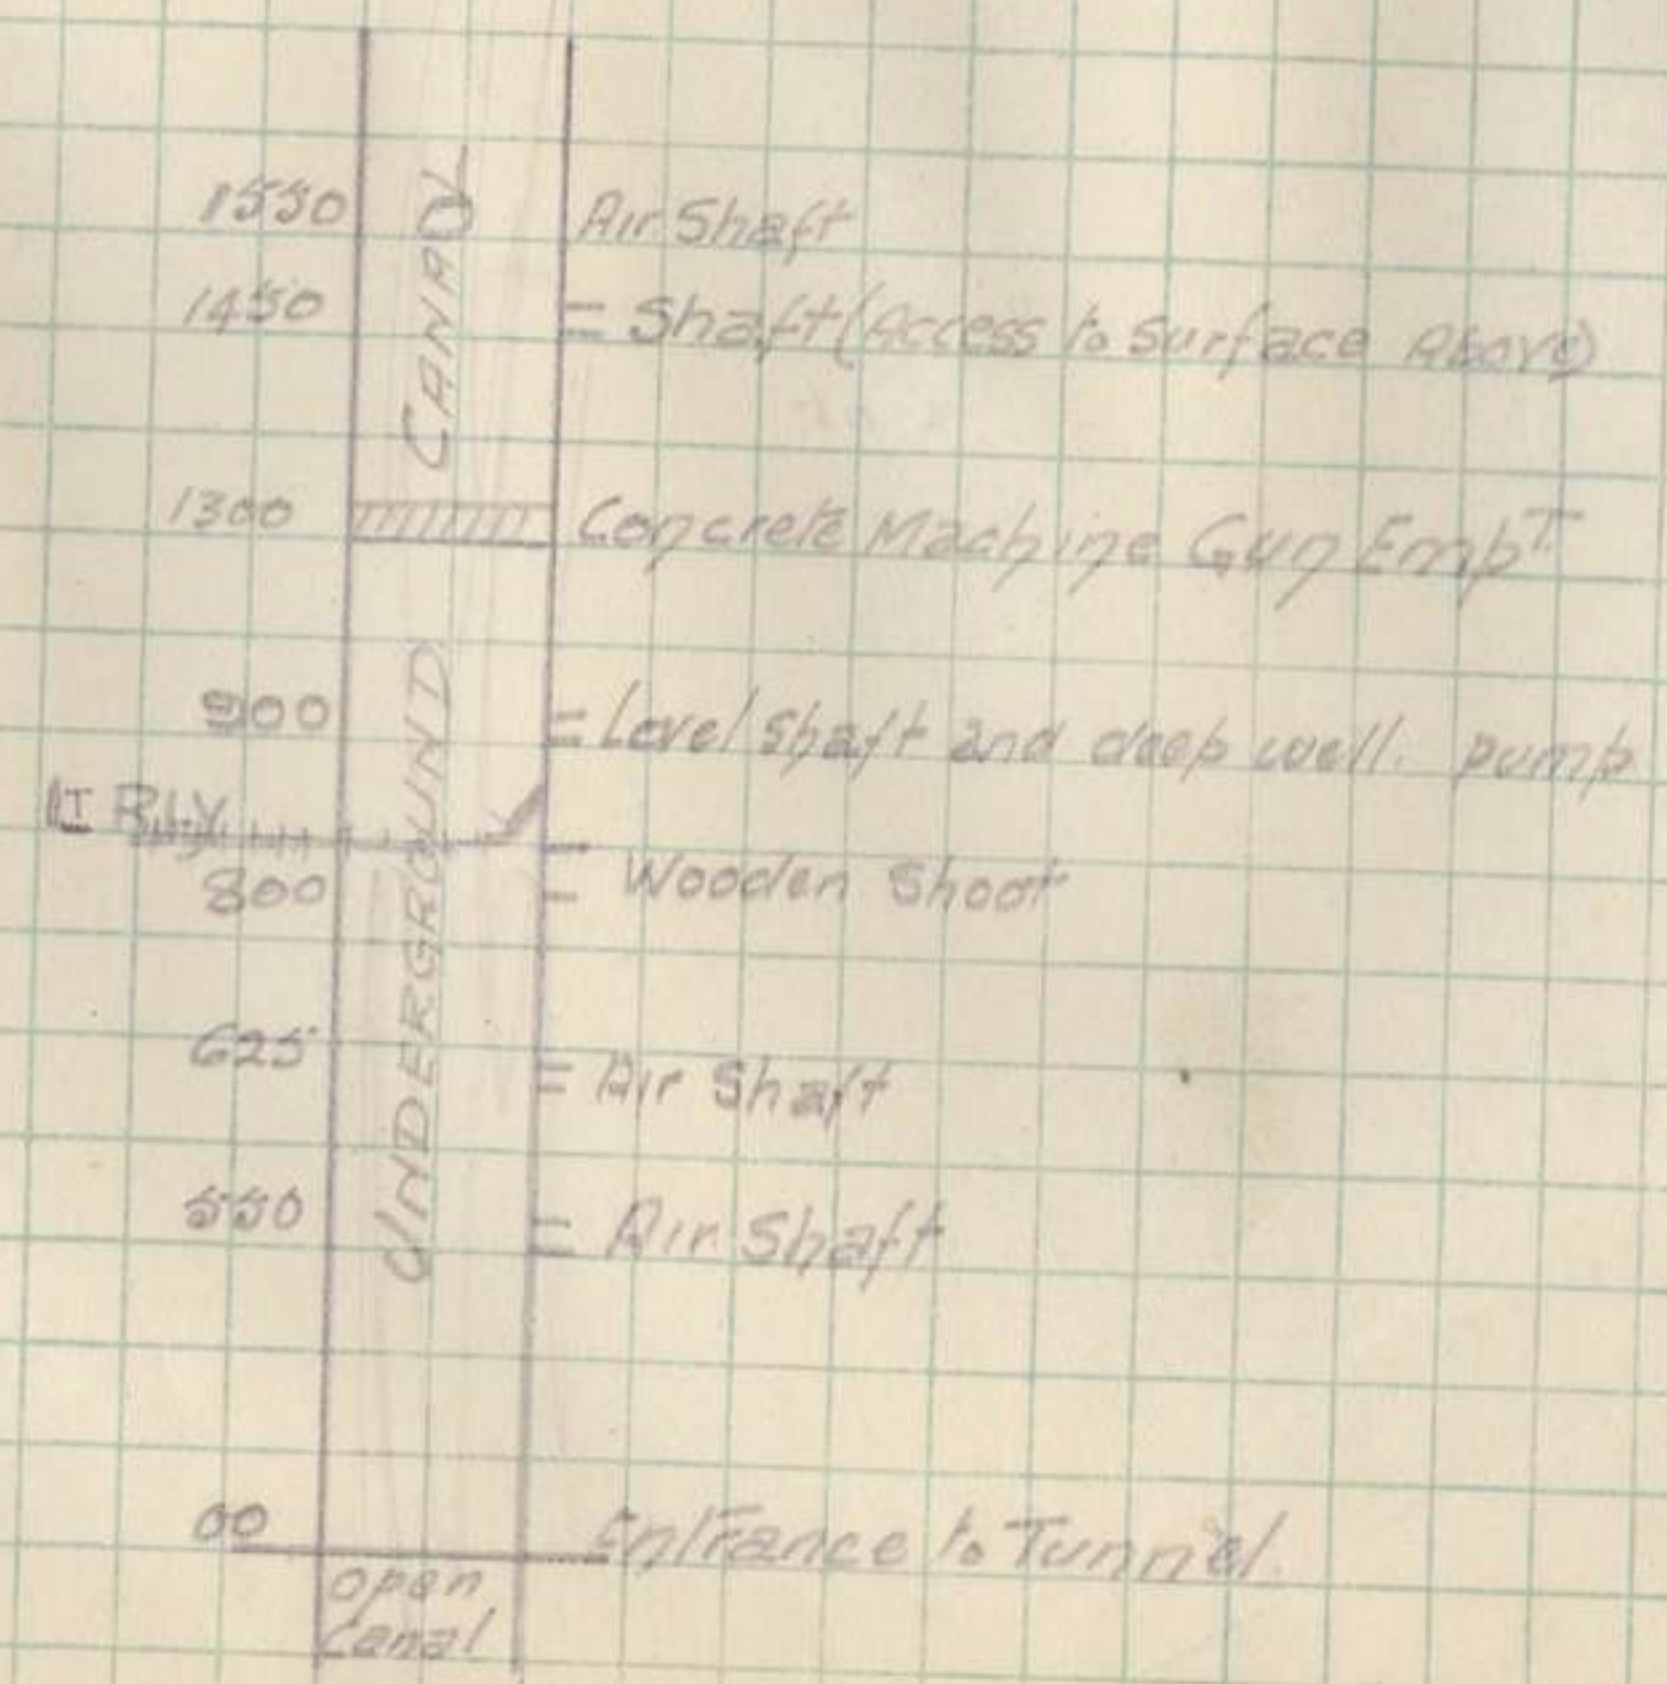 1550 Air Shaft
1450 = Shaft (Access to Surface Above)
CANAL
1300 Concrete Machine Gun Empᵀ
900 = Level Shaft and deep well. pump
Lt Rly
800 = Wooden Shoot
UNDERGROUND
625 = Air Shaft
550 = Air Shaft
00 Entrance to Tunnel.
open
Canal